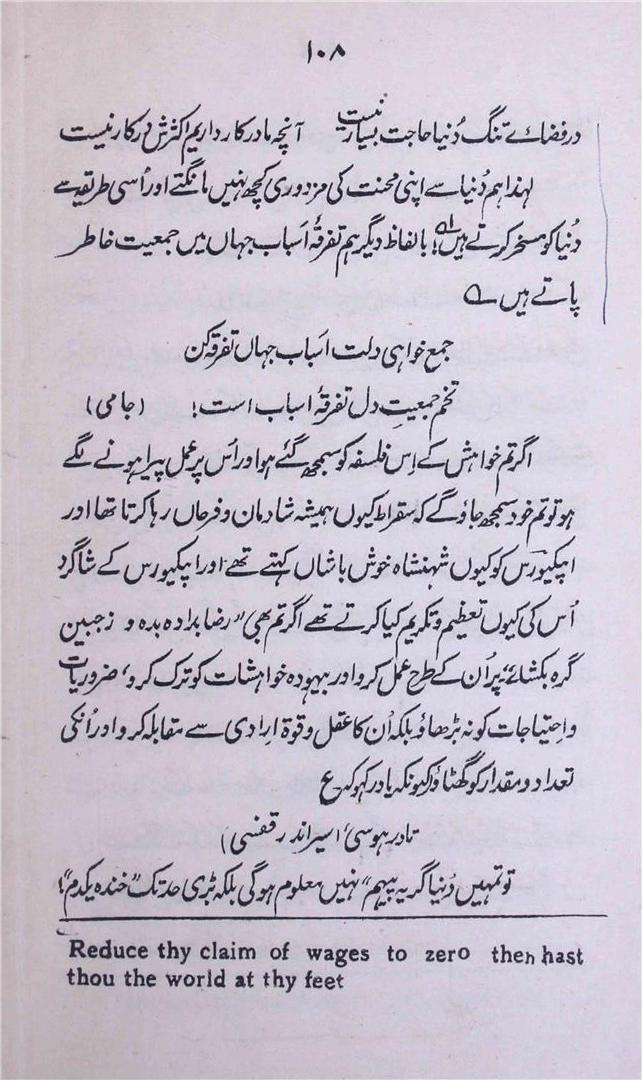 ۱۰۸
در فضائے تنگ دُنیا حاجت بسیار نیست آنچہ ما در کار داریم اکثرش در کار نیست
لہٰذا ہم دُنیا سے اپنی محنت کی مزدوری کچھ نہیں مانگتے اور اُسی طریقہ سے
دُنیا کو مسخر کرتے ہیں! بالفاظ دیگر ہم تفرقۂ اسباب جہاں میں جمعیت خاطر
پاتے ہیں ے
جمع خواہی دلت اسباب جہاں تفرقہ کن
تخم جمعیتِ دل تفرقۂ اسباب است! (جامی)
اگر تم خواہش کے اِس فلسفہ کو سمجھ گئے ہو اور اس پر عمل پیرا ہونے لگے
ہو تو تم خود سمجھ جاؤ گے کہ سقراط کیوں ہمیشہ شادمان و فرحاں رہا کرتا تھا اور
ایپکیورس کو کیوں شہنشاہ خوش باشاں کہتے تھے اور ایپکیورس کے شاگرد
اُس کی کیوں تعظیم و تکریم کیا کرتے تھے اگر تم بھی "رضا بدادہ بدہ و زجبین
گرہ بکشائے" پر اُن کے طرح عمل کرو اور بیہودہ خواہشات کو ترک کرو، ضروریات
و احتیاجات کو نہ بڑھاؤ بلکہ اُن کا عقل و قوۃ ارادی سے مقابلہ کرو اور اُنکی
تعداد و مقدار کو گھٹاؤ کیونکہ یاد رکہو کہ ع
تا در ہوسی اسیر اندر قفسی)
تو تمہیں دُنیا "گریہ پیہم" نہیں معلوم ہوگی بلکہ بڑی حد تک "خندہ یکدم"!
Reduce thy claim of wages to zero then hast
thou the world at thy feet